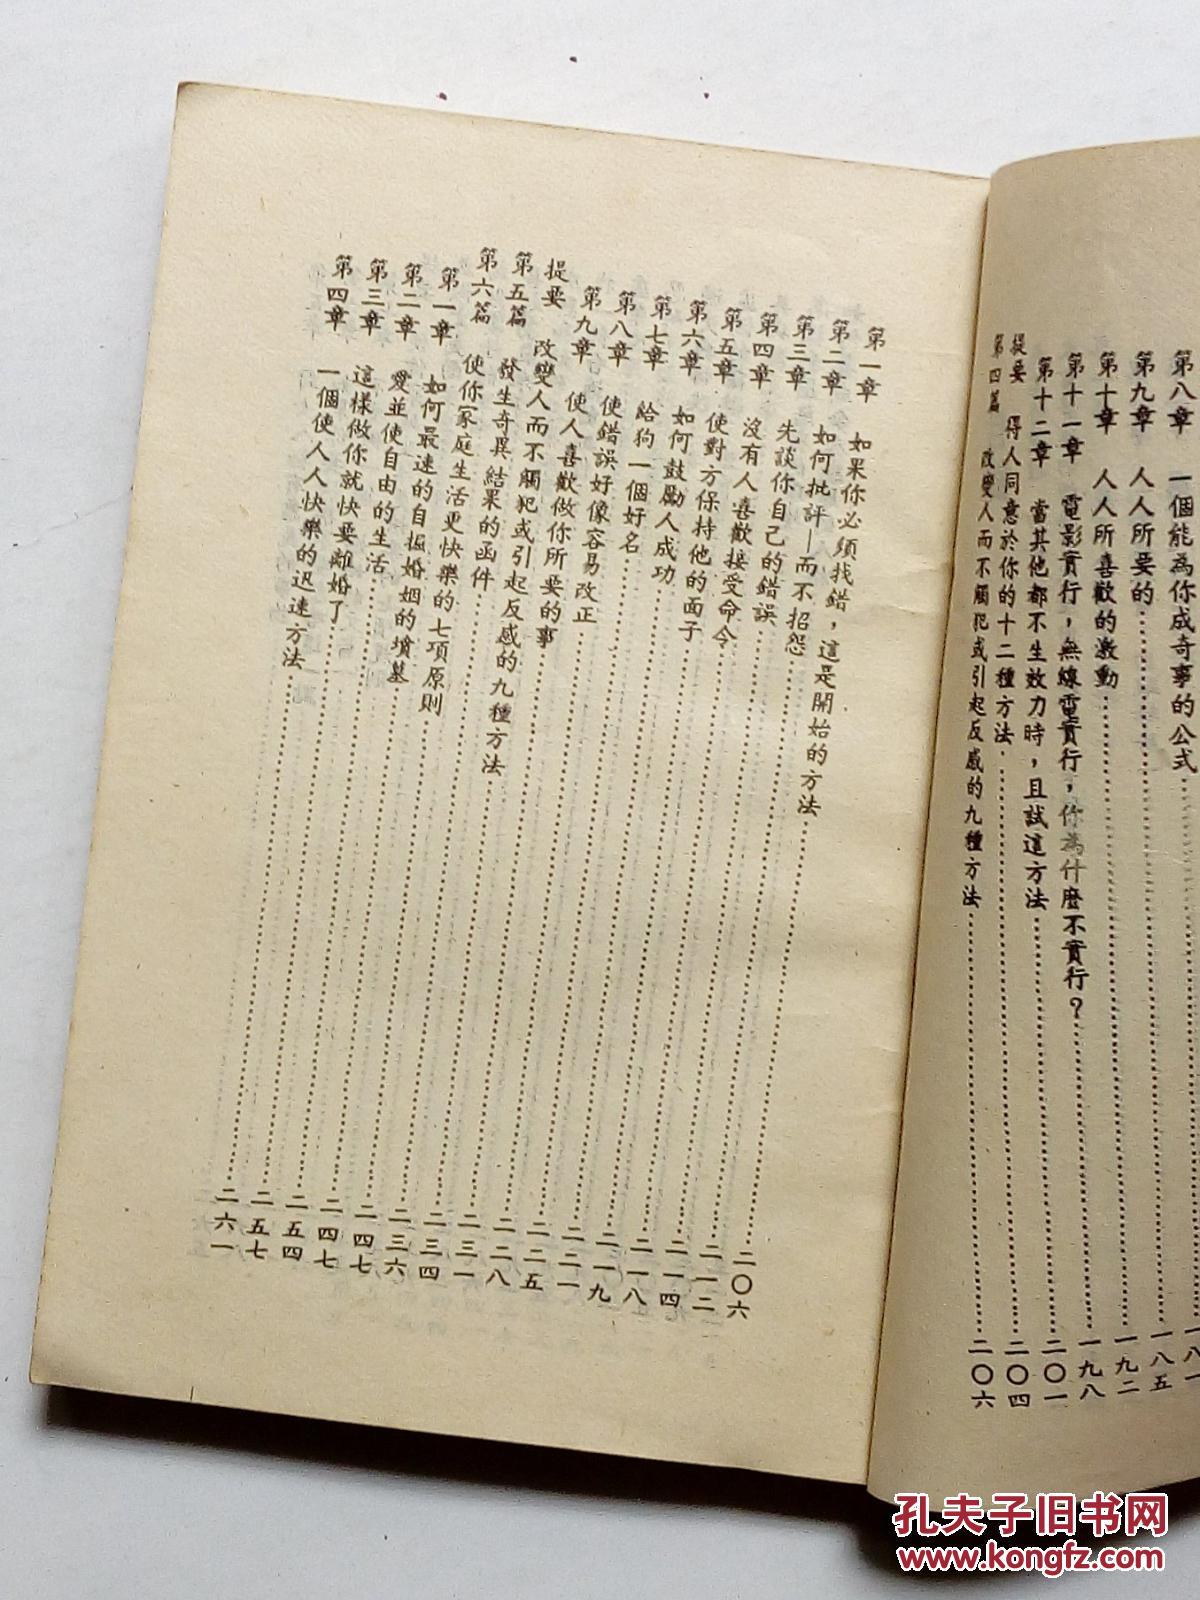 第八章 一個能為你成奇事的公式……一八一
第九章 人人所要的……一八五
第十章 人人所喜歡的激動……一九二
第十一章 電影實行，無線電實行，你為什麼不實行？……一九八
第十二章 當其他都不生效力時，且試這方法……二〇一
提要 得人同意於你的十二種方法……二〇四
第四篇 改變人而不觸犯或引起反感的九種方法……二〇六
第一章 如果你必須找錯，這是開始的方法……二〇六
第二章 如何批評—而不招怨……二一二
第三章 先談你自己的錯誤……二一四
第四章 沒有人喜歡接受命令……二一八
第五章 使對方保持他的面子……二一九
第六章 如何鼓勵人成功……二二一
第七章 給狗一個好名……二二五
第八章 使錯誤好像容易改正……二二八
第九章 使人喜歡做你所要的事……二三一
提要 改變人而不觸犯或引起反感的九種方法……二三四
第五篇 發生奇異結果的函件……二三六
第六篇 使你家庭生活更快樂的七項原則……二四七
第一章 如何最速的自掘婚姻的墳墓……二四七
第二章 愛並使自由的生活……二五四
第三章 這樣做你就快要離婚了……二五七
第四章 一個使人人快樂的迅速方法……二六一
孔夫子旧书网
www.kongfz.com